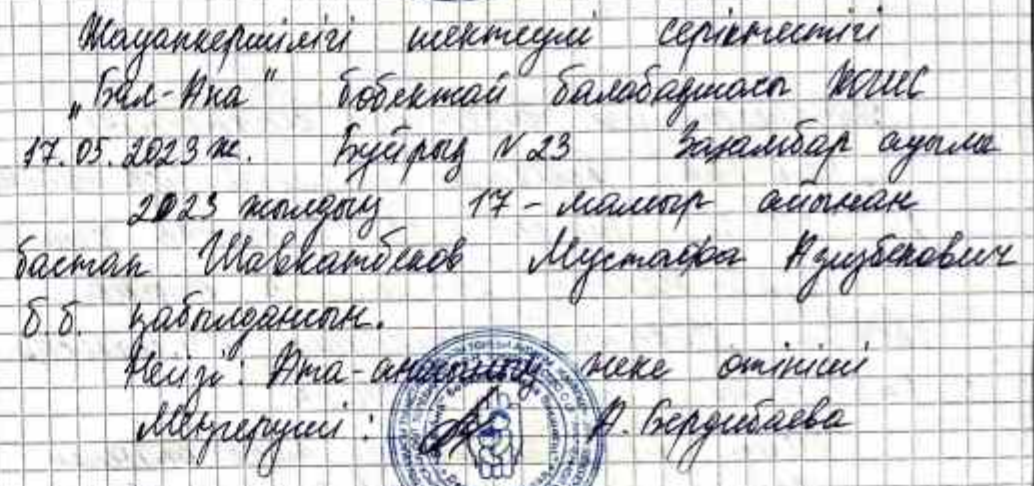 Жауапкершілігі шектеулі серіктестігі
„Бал-Ана" бөбекжай балабақшасы ЖШС
17.05.2023 ж. Бұйрық N 23 ауылы
2023 жылдың 17 - мамыр айынан
бастап Шавкатбеков Мустафа Азизбекович
б.б. қабылдансын.
Негізі: Ата-анасының жеке өтініші
Меңгеруші: А. Бердибаева